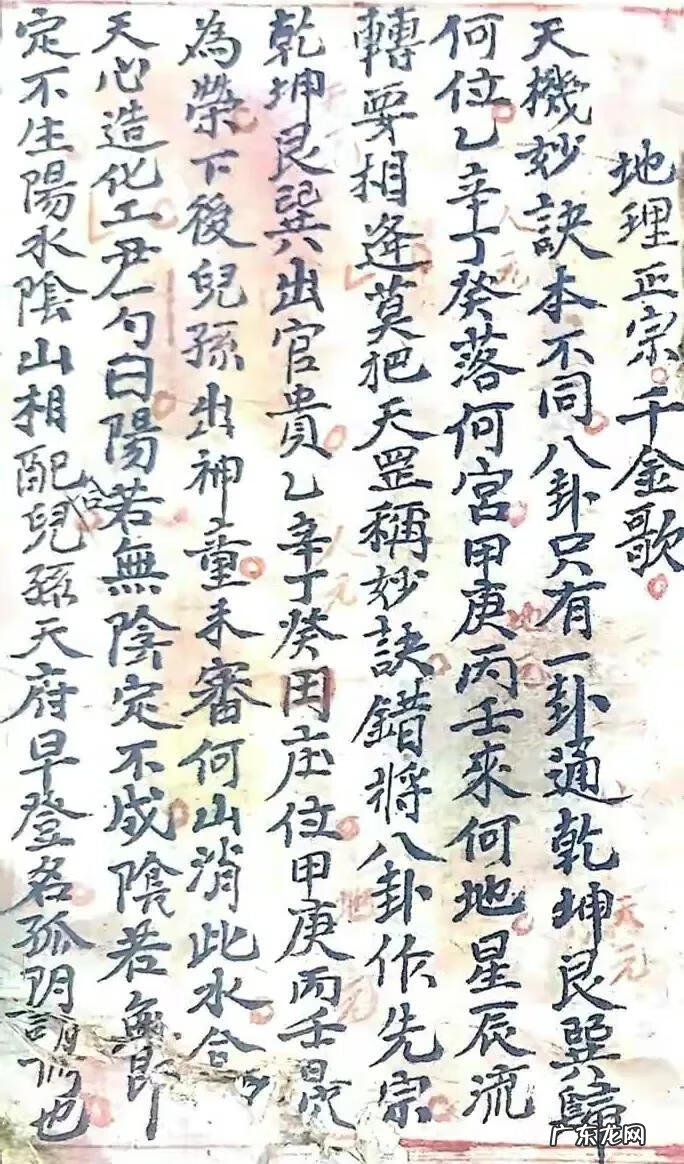 地理正宗千金歌
天機妙訣本不同八卦只有一卦通乾坤艮巽歸
天元
何位乙辛丁癸落何宮甲庚丙壬來何地星辰流
人元
地元
轉要相逢莫把天罡稱妙訣錯將八卦作先宗
乾坤艮巽出官貴乙辛丁癸田庄位甲庚丙壬最
人元
地元
為榮下後兒孫出神童未審何山消此水合
天心造化工尹一勺曰陽若無陰定不成陰若無
定不生陽水陰山相配合兒孫天府早登名孤阴也
广东龙网